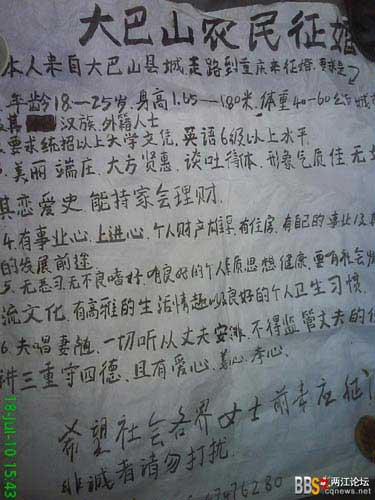 大巴山农民征婚
本人来自大巴山县城走路到重庆来征婚.要求是
年龄18—25岁.身高1.65—180米.体重40—60公斤
其 汉族.外籍人士
要求统招以上大学文凭.英语6级以上水平
美丽 端庄、大方贤惠、谈吐得体、形象气质佳无
其恋爱史 能持家会理财.
4.有事业心.上进心.个人财产雄厚.有住房.有自己的事业
的发展前途
5.无恶习无不良嗜好.有良好的个人素质思想健康.
流文化.有高雅的生活情趣以及良好的个人卫生习惯.
6.夫唱妻随.一切听从丈夫安排.不得监管丈夫的
讲三重守四德.且有爱心.善心.孝心.
希望社会各界女士前来应征
非诚者请勿打扰.
76280
18-Jul-10 15:43
BBS 两江论坛
cqnews.net